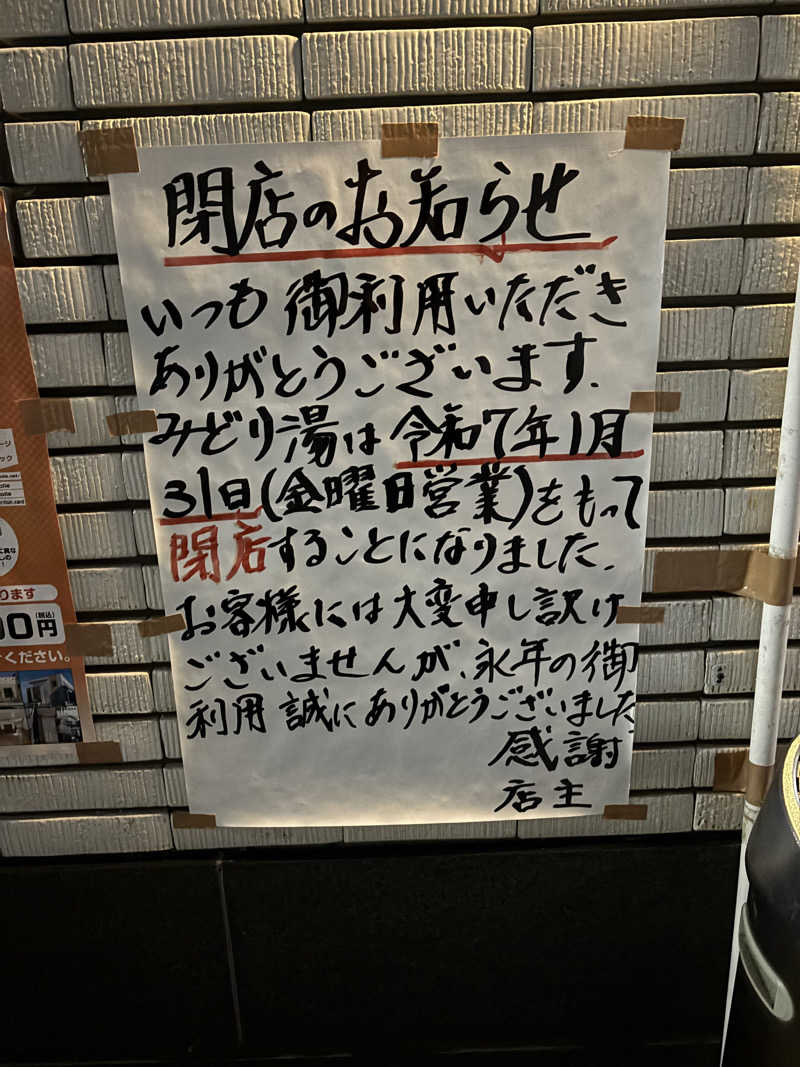 閉店のお知らせ
いつも御利用いただき
ありがとうございます.
みどり湯は令和7年1月
31日(金曜日営業)をもって
閉店することになりました.
お客様には大変申し訳け
ございませんが、永年の御
利用誠にありがとうございました
感謝
店主
ります
00円
(税込)
ください。